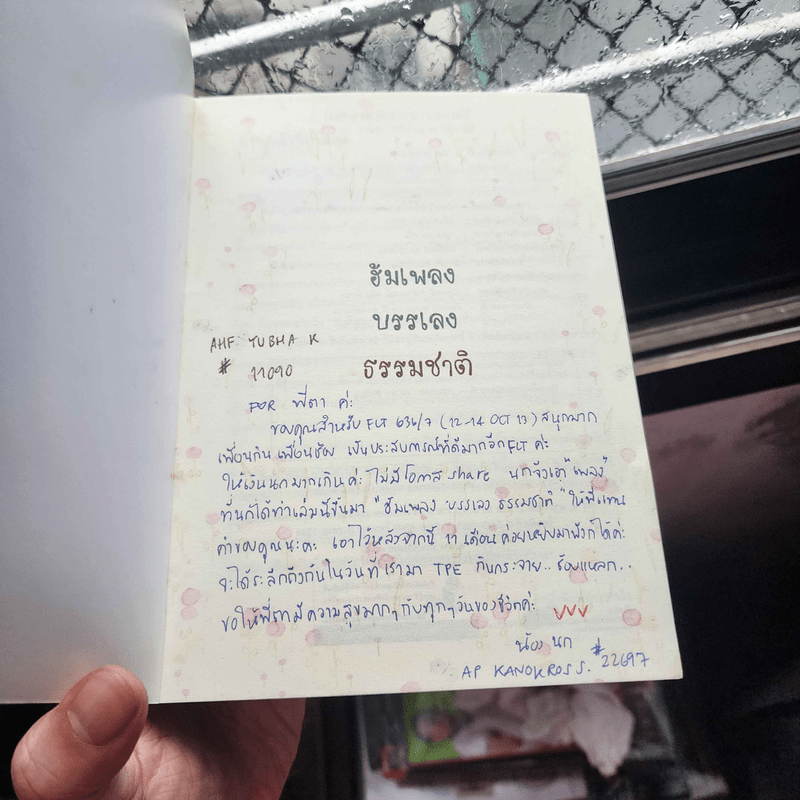 ฮัมเพลง
บรรเลง
ธรรมชาติ
AHF YUBHA K
# 11090
FOR พี่ตา ค่ะ
ขอบคุณสำหรับ FLT 636/7 (12-14 OCT 13) สนุกมาก
เพื่อนกิน เพื่อนช้อป เป็นประสบการณ์ที่ดีมากอีก FLT ค่ะ
ให้เงินนกมากเกินค่ะ ไม่มีโอกาส share นกจึงเอา "เพลง"
ที่นกได้ทำเล่มนี้ขึ้นมา "ฮัมเพลง บรรเลง ธรรมชาติ" ให้พี่แทน
คำขอบคุณนะคะ เอาไว้หลังจากนี้ 11 เดือน ค่อยหยิบมาฟังก็ได้ค่ะ
จะได้ระลึกถึงกันในวันที่เรามา TPE กินกระจาย.. ช้อปแหลก..
ขอให้พี่ตามีความสุขมากๆ กับทุกๆวันของชีวิตค่ะ
น้อง นก
AP KANOKROS S. #22697